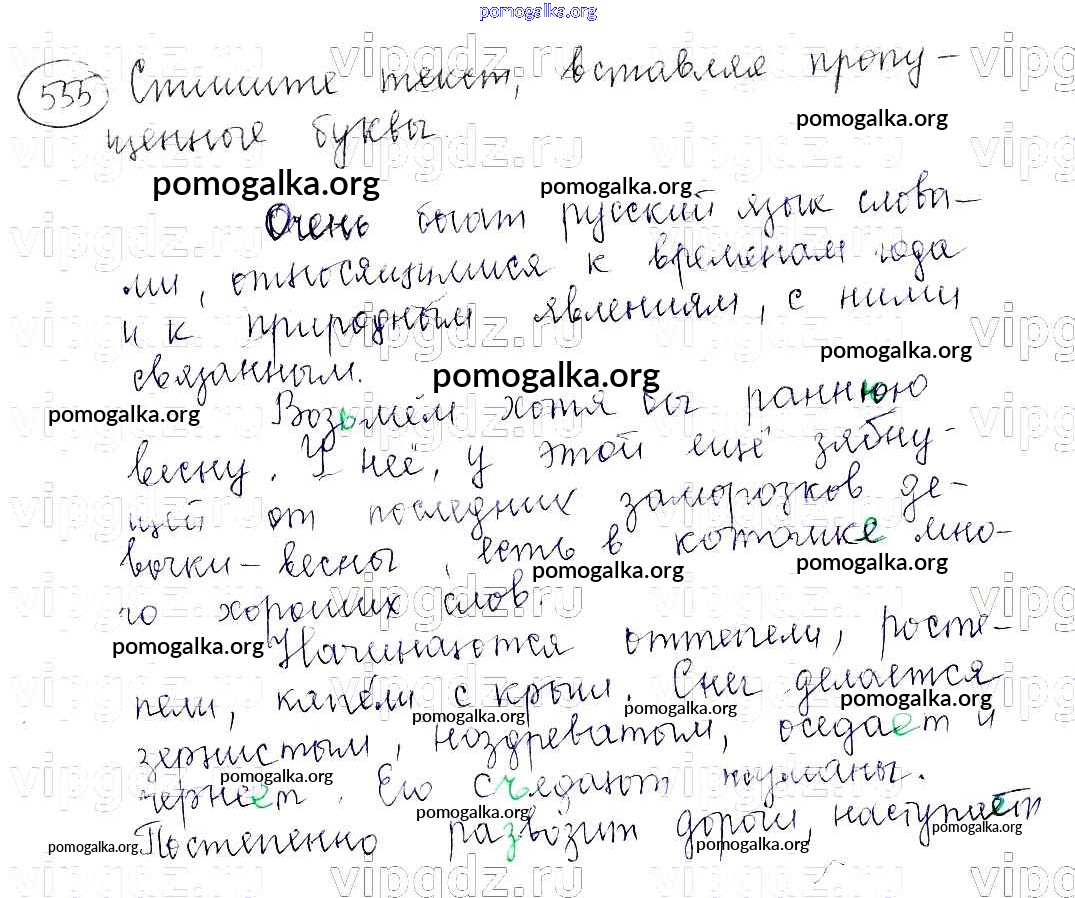 pomogalka.org
535 Спишите текст, вставляя пропу-
pomogalka.org
щенные буквы
pomogalka.org pomogalka.org
Очень богат русский язык слова-
ми, относящимися к временам года
и к природным явлениям, с ними
pomogalka.org
связанным.
pomogalka.org
pomogalka.org
Возьмём хотя бы раннюю
весну. У неё, у этой ещё зябну-
щей от последних заморозков де-
вочки-весны, есть в котомке мно-
pomogalka.org pomogalka.org
го хороших слов.
pomogalka.org
Начинаются оттепели, росте-
пели, капели с крыш. Снег делается
pomogalka.org pomogalka.org pomogalka.org
зернистым, ноздреватым, оседает и
pomogalka.org
чернеет. Его съедают туманы.
pomogalka.org
Постепенно развозит дороги, наступает
pomogalka.org pomogalka.org pomogalka.org
vipgdz.ru